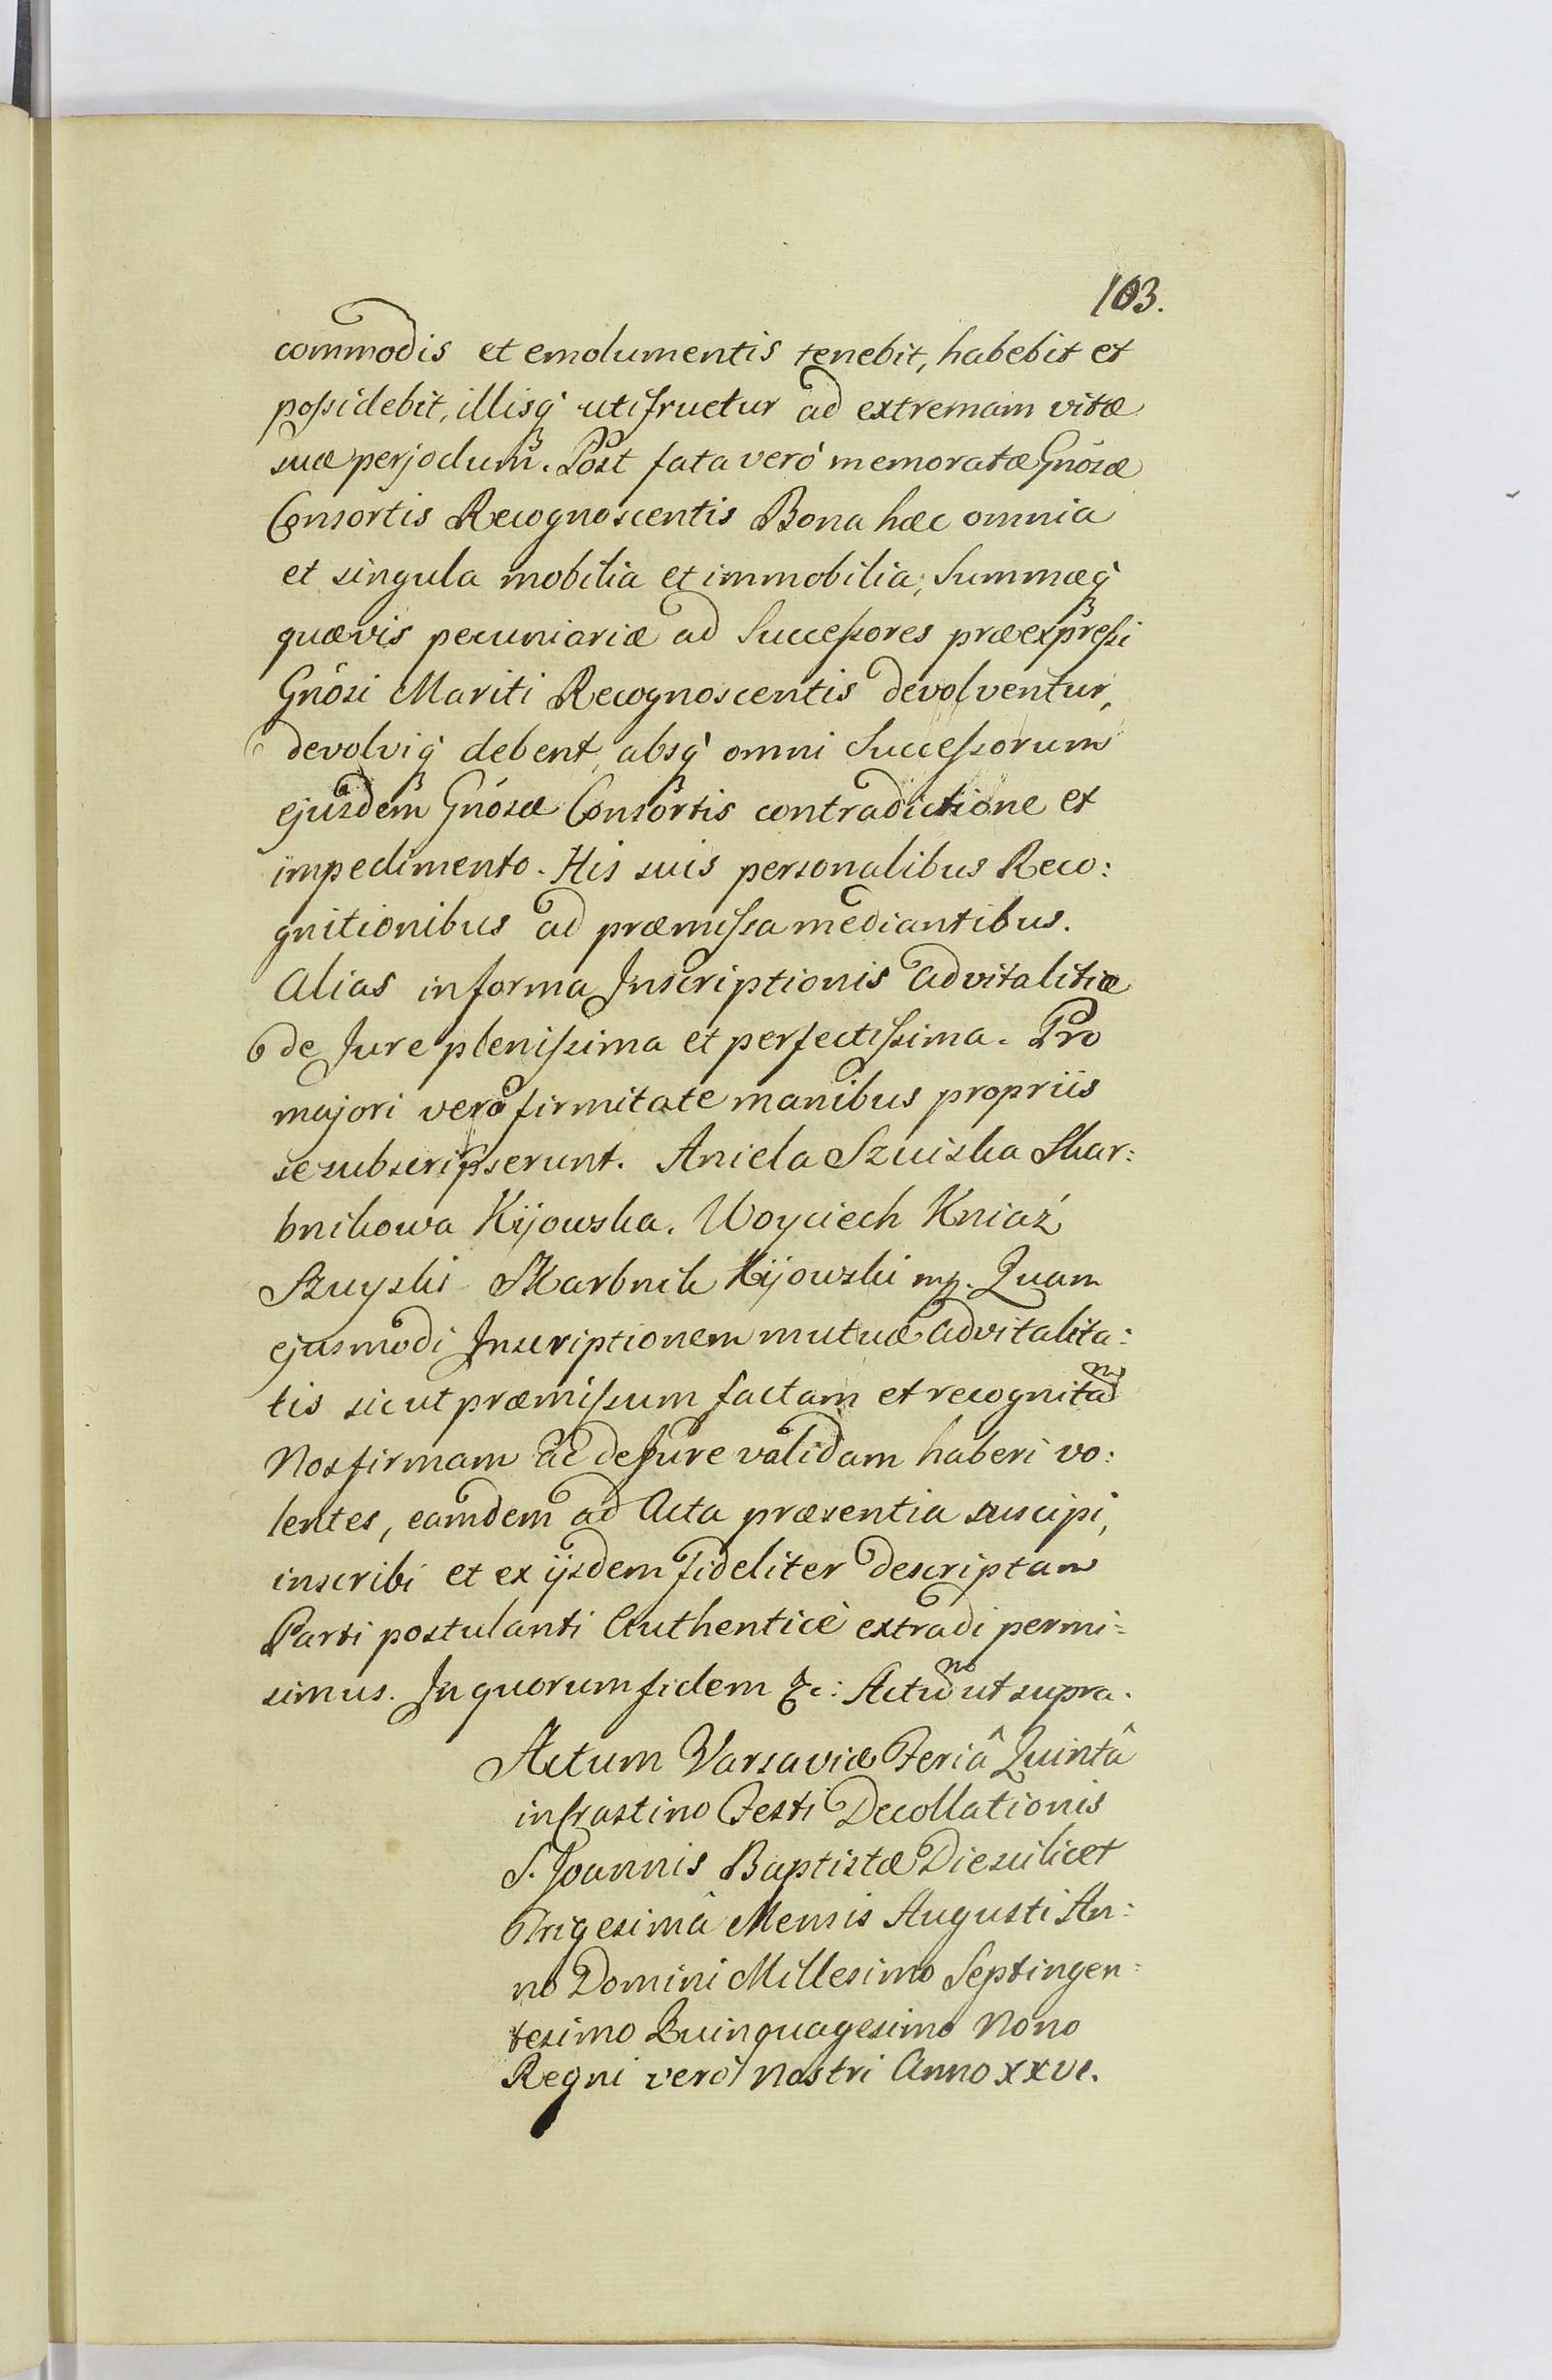 103.
commodis et emolumentis tenebit, habebit et
possidebit, illisq́ utifructur ad extremam vitæ
suæ perjodum. Post fata verò memoratæ Gnósæ
Consortis Recognoscentis Bona hæc omnia
et singula mobilia et immobilia, Summæq́
quævis pecuniariæ ad Successores præexpressi
Gnósi Mariti Recognoscentis devolventur,
devolviq́ debent, absq́ omni Successorum
ejusdem Gnósæ Consortis contradictione et
impedimento. His suis personalibus Reco:
gnitionibus ad præmissa mediantibus.
Alias in forma Inscriptionis Advitalitiæ
de Jure plenissima et perfectissima. Pro
majori verò firmitate manibus propriis
se subscripserunt. Aniela Szuiska Skar:
bnikowa Kijowska. Woyciech Kniaź
Szuyski Skarbnik Kijowski mp. Quam
ejusmodi Inscriptionem mutuæ advitalita:
tis sicut præmissum factam et recognitam
Nos firmam ac de Jure validam haberi vo:
lentes, eamdem ad Acta præsentia suscipi,
inscribi et ex ijsdem fideliter descriptam
Parti postulanti Authenticè extradi permi:
simus. In quorum fidem &c: Actum ut supra.
Actum Varsaviæ Feriâ Quintâ
in Crastino Festi Decollationis
S. Joannis Baptistæ Die scilicet
Trigesimâ Mensis Augusti An:
no Domini Millesimo Septingen:
tesimo Quinquagesimo Nono
Regni verò Nostri Anno XXVI.